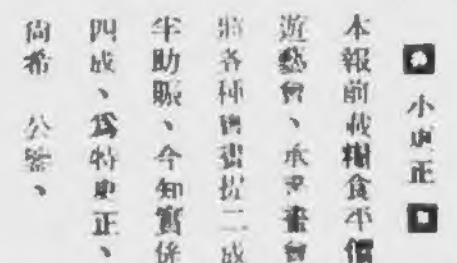 小更正
本報前載糧食平價
遊藝會、承書畫會
將各種書畫提二成
半助賑、今知實係
四成、爲特更正、
尙希 公鑒、